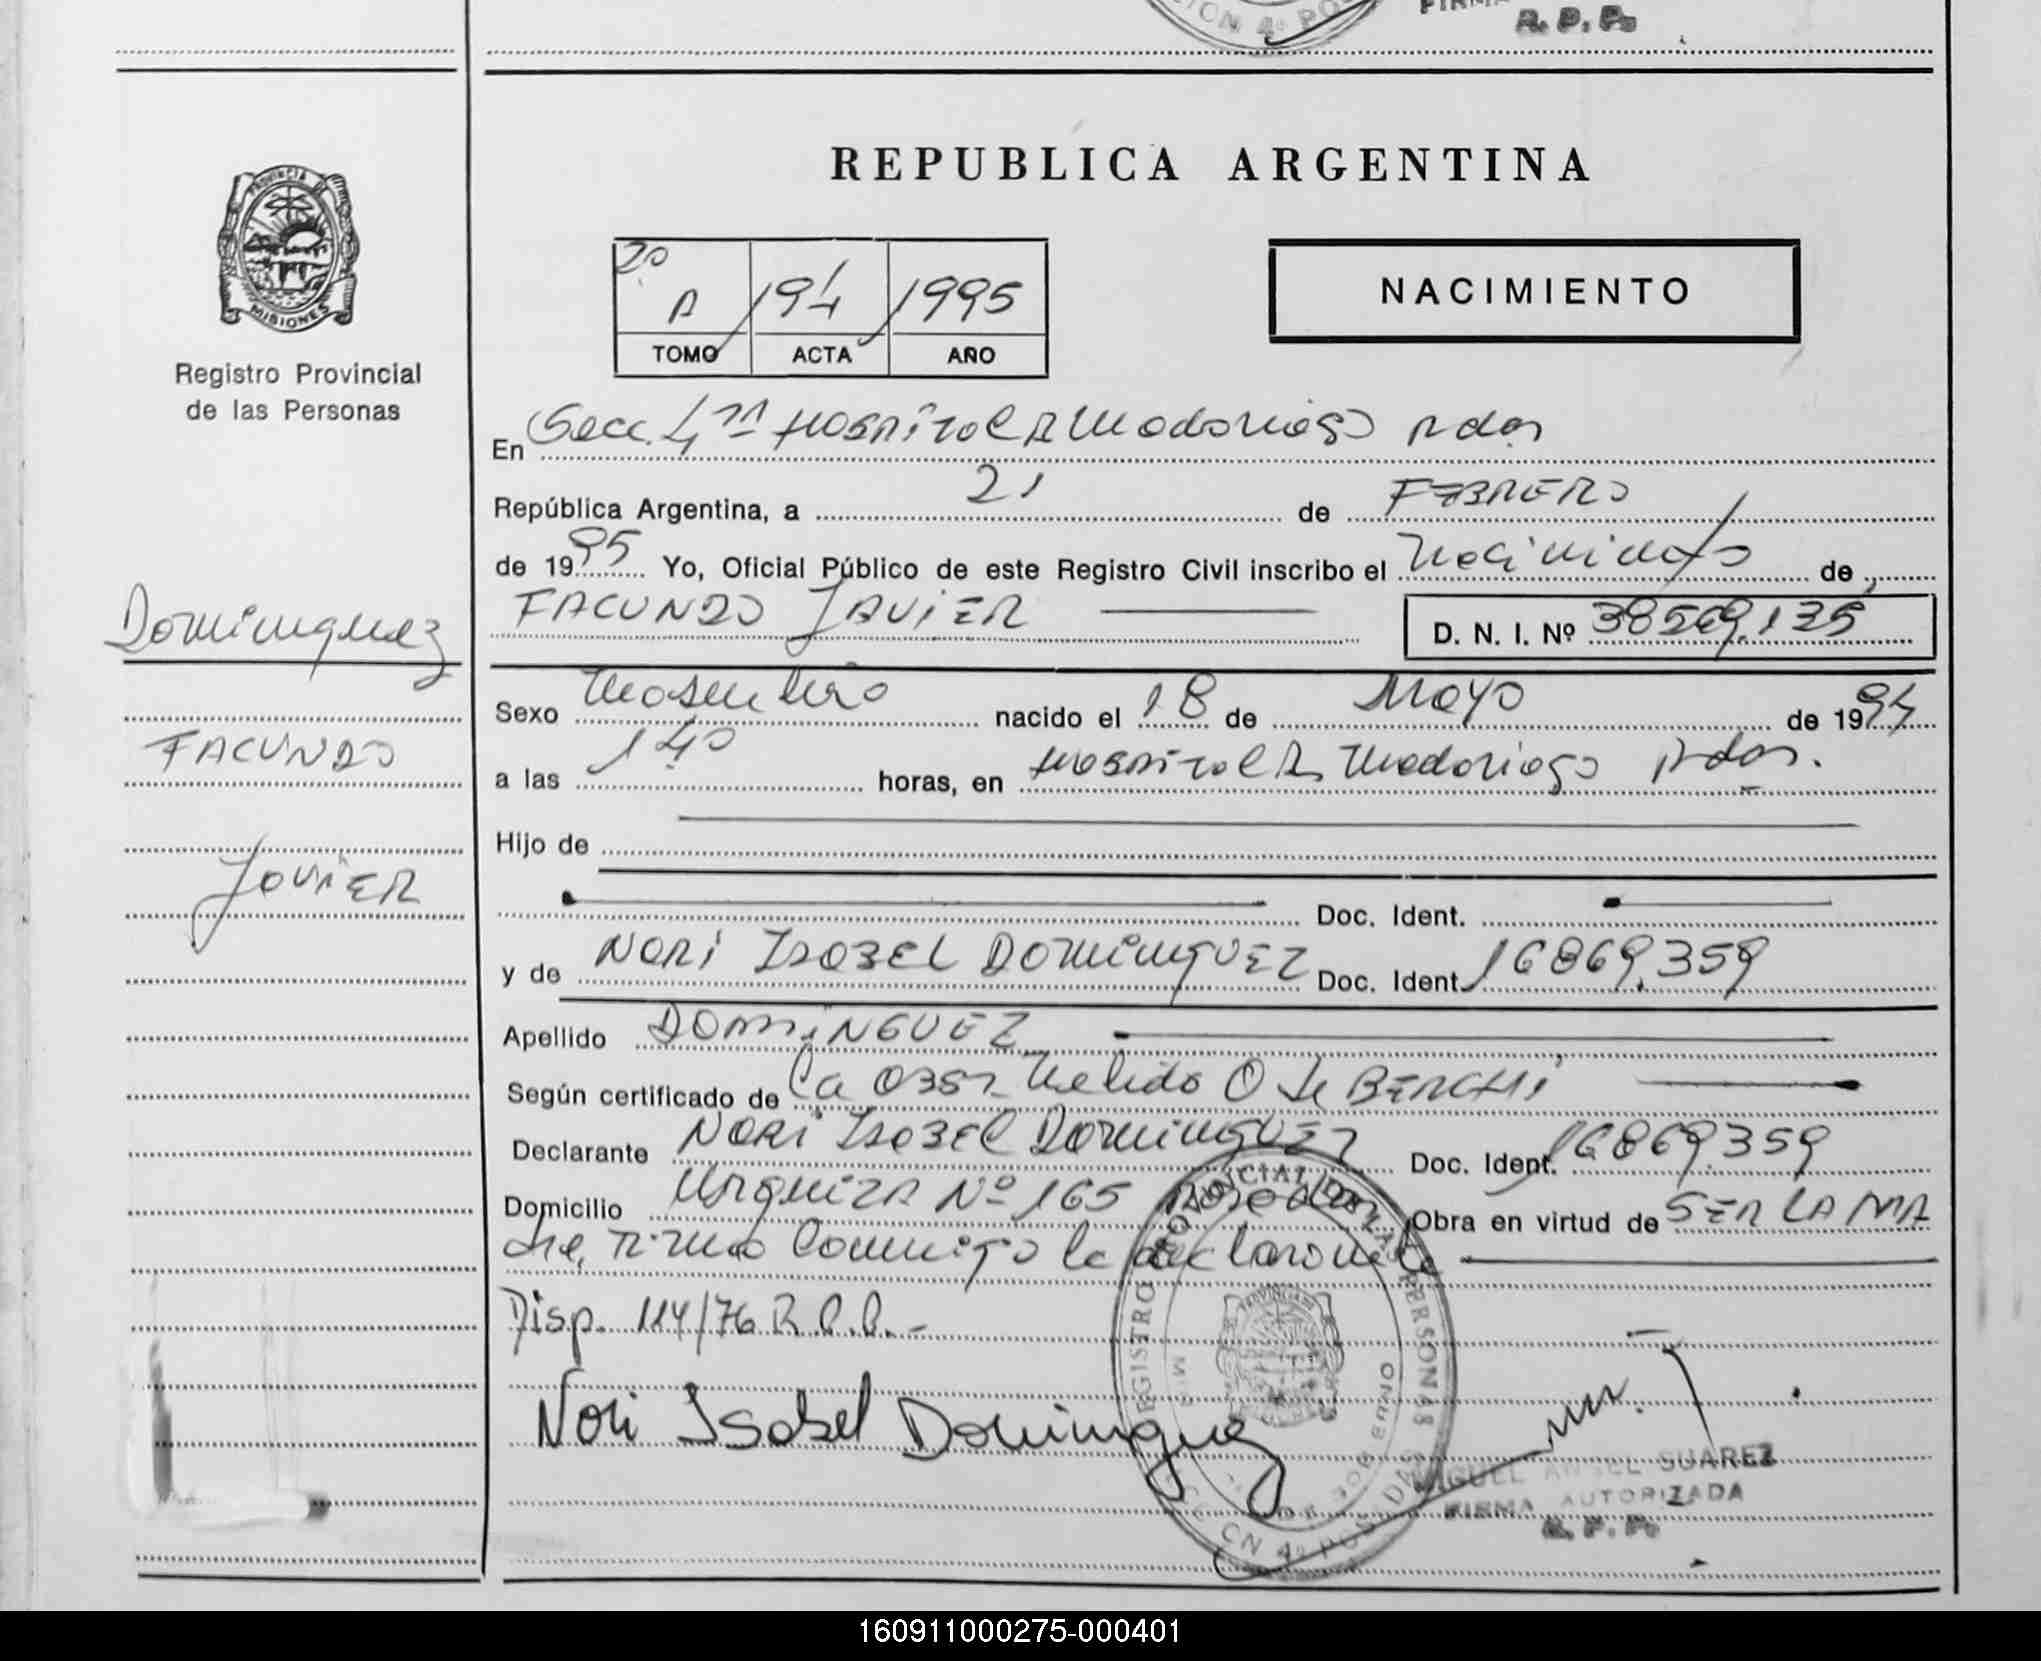 CION 4º POS
FIRMA
R. P. P.
PROVINCIA DE
MISIONES
Registro Provincial
de las Personas
Dominguez
FACUNDO
JAVIER
REPUBLICA ARGENTINA
20 A / 194 / 1995
TOMO ACTA AÑO
NACIMIENTO
En Secc. 4ta Hospital R Madariaga Pdas
República Argentina, a 21 de FEBRERO
de 1995 Yo, Oficial Público de este Registro Civil inscribo el nacimiento de
FACUNDO JAVIER D. N. I. Nº 38569.135
Sexo Masculino nacido el 18 de Mayo de 1994
a las 140 horas, en Hospital R. Madariaga Pdas.
Hijo de
Doc. Ident.
y de NORI ISABEL DOMINGUEZ Doc. Ident. 16869.359
Apellido DOMINGUEZ
Según certificado de la Obst. Nelida O de BERCHI
Declarante NORI ISABEL DOMINGUEZ Doc. Ident. 16869.359
Domicilio Urquiza Nº 165 Obra en virtud de SER LA MA
dre, Firma Conmigo la declarante
Disp. 114/76 R.P.P.-
Nori Isabel Dominguez
REGISTRO PROVINCIAL DE LAS PERSONAS
MIGUEL ANGEL SUAREZ
FIRMA AUTORIZADA
R. P. P.
160911000275-000401